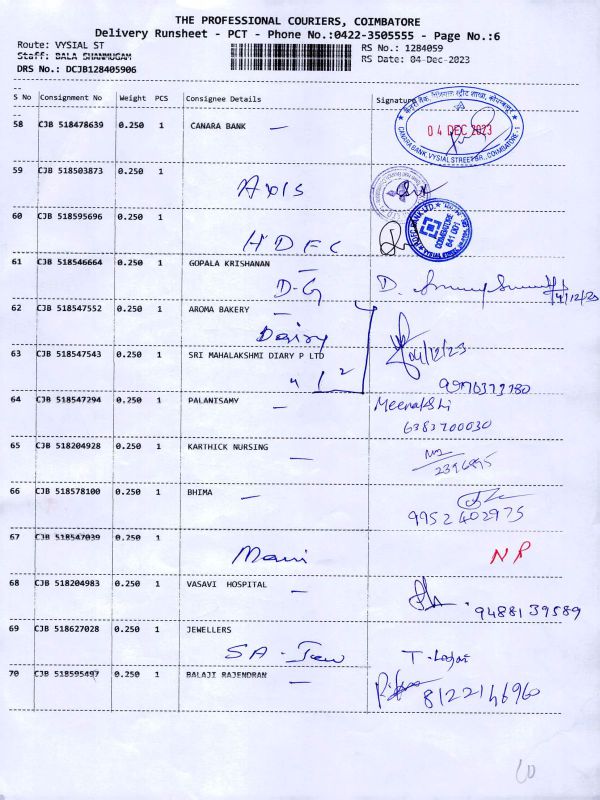 THE PROFESSIONAL COURIERS, COIMBATORE
Delivery Runsheet - PCT - Phone No.:0422-3505555 - Page No.:6
Route: VYSIAL ST RS No.: 1284059
Staff: BALA SHANMUGAM RS Date: 04-Dec-2023
DRS No.: DCJB128405906
S No Consignment No Weight PCS Consignee Details Signature
58 CJB 518478639 0.250 1 CANARA BANK —
CANARA BANK, VYSIAL STREET BR., COIMBATORE-1
04 DEC 2023
59 CJB 518503873 0.250 1
Axis
60 CJB 518595696 0.250 1
HDFC
COIMBATORE
641 001
61 CJB 518546664 0.250 1 GOPALA KRISHANAN —
D-G D. 4/12/23
62 CJB 518547552 0.250 1 AROMA BAKERY —
Dairy
04/12/23
63 CJB 518547543 0.250 1 SRI MAHALAKSHMI DIARY P LTD
" 12
64 CJB 518547294 0.250 1 PALANISAMY — Meenakshi
6383700030
65 CJB 518204928 0.250 1 KARTHICK NURSING —
2396895
66 CJB 518578100 0.250 1 BHIMA —
9952402975
67 CJB 518547039 0.250 1
Mani NR
68 CJB 518204983 0.250 1 VASAVI HOSPITAL —
9488139589
69 CJB 518627028 0.250 1 JEWELLERS
SA-Jew
70 CJB 518595497 0.250 1 BALAJI RAJENDRAN —
8122146960